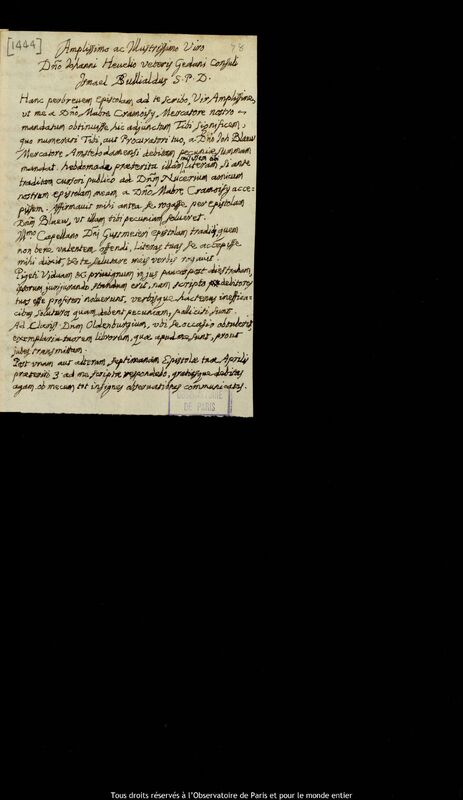 [1444] 78
Amplissimo ac Illustrissimo Viro
Dño Iohanni Hevelio veteris Gedani Consuli
Ismael Bullialdus S. P. D.
Hanc perbrevem epistolam ad te scribo, Vir Amplissime,
ut me a Dño Mabre Cramoisy, Mercatore nostro
mandatum obtinuisse, hic adjunctum Tibi significem,
quo numerari Tibi, aut Procuratori tuo, a Dño Joh Blaeu
Mercatore Amstelodamensi debitam pecuniæ summam
mandat. hebdomada præterita illam literam, si ante
traditam cursori publico ad Dñm Nucerium amicum
nostrum epistolam meam, a Dño Mabre Cramoisy acce-
pissem. Affirmavit mihi antea se rogasse per epistolam
Dñm Blaeu, ut illam tibi pecuniam solveret.
Capellano Dñi Gutsmeier epistolam tradidi, quem
non bene valentem offendi, literas tuas se accepisse
mihi dixit, & te salutare meis verbis rogavit.
Pigeti Viduam & privignum in jus paucos post dies traham,
ipsorum jurijurando standum erit, nam scripto debitores
tuos esse profiteri noluerunt, verbisque hactenus ineffica-
cibus soluturos quam debent pecuniam, polliciti sunt.
Ad Clariss. Dnm Oldenburgium, ubi se occasio obtulerit,
exemplaria tuorum librorum, quæ apud me sunt, prout
jubes transmittam.
Post unam aut alteram septimanam Epistolæ tuæ Aprilis
præteriti 3 ad me scriptæ respondebo, gratesque debitas
agam, ob mecum tot insignes observationes communicatas.
OBSERVATOIRE
DE PARIS
Tous droits réservés à l'Observatoire de Paris et pour le monde entier